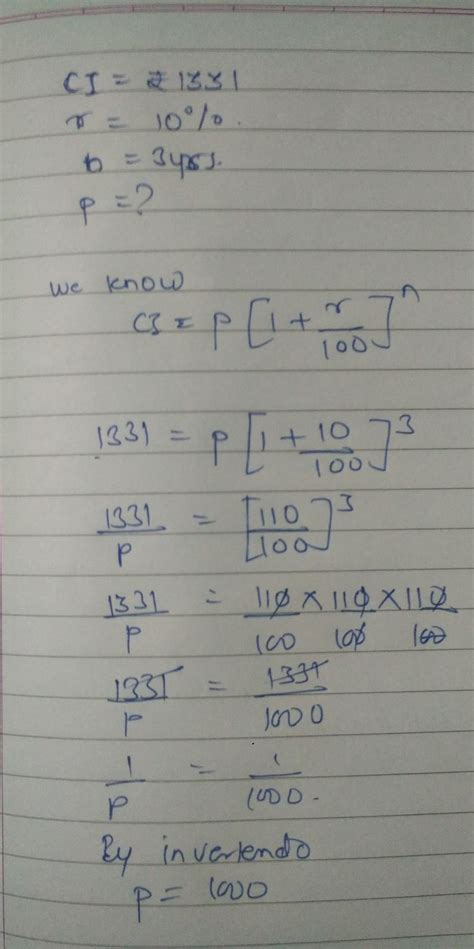 CI = ₹1331
r = 10%.
n = 3yrs.
P = ?
we know
CI = P [1 + r/100]^n
1331 = P [1 + 10/100]^3
1331/P = [110/100]^3
1331/P = 110 × 110 × 110 / 100 100 100
1331/P = 1331/1000
1/P = 1/1000.
By invertendo
P = 1000